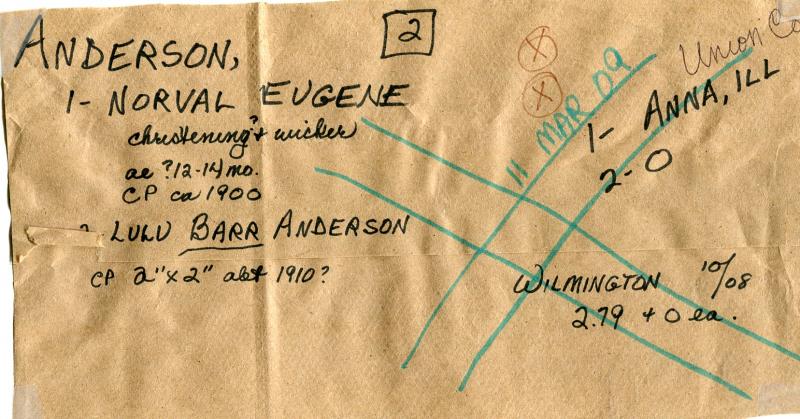 ANDERSON,
2
Union Co
1- NORVAL EUGENE
1- ANNA, ILL
11 MAR 09
X
X
christening? + wicker
ae ?12-14 mo.
2-0
CP ca 1900
2 LULU BARR ANDERSON
CP 2"x 2" abt 1910?
WILMINGTON 10/08
2.79 + 0 ea.